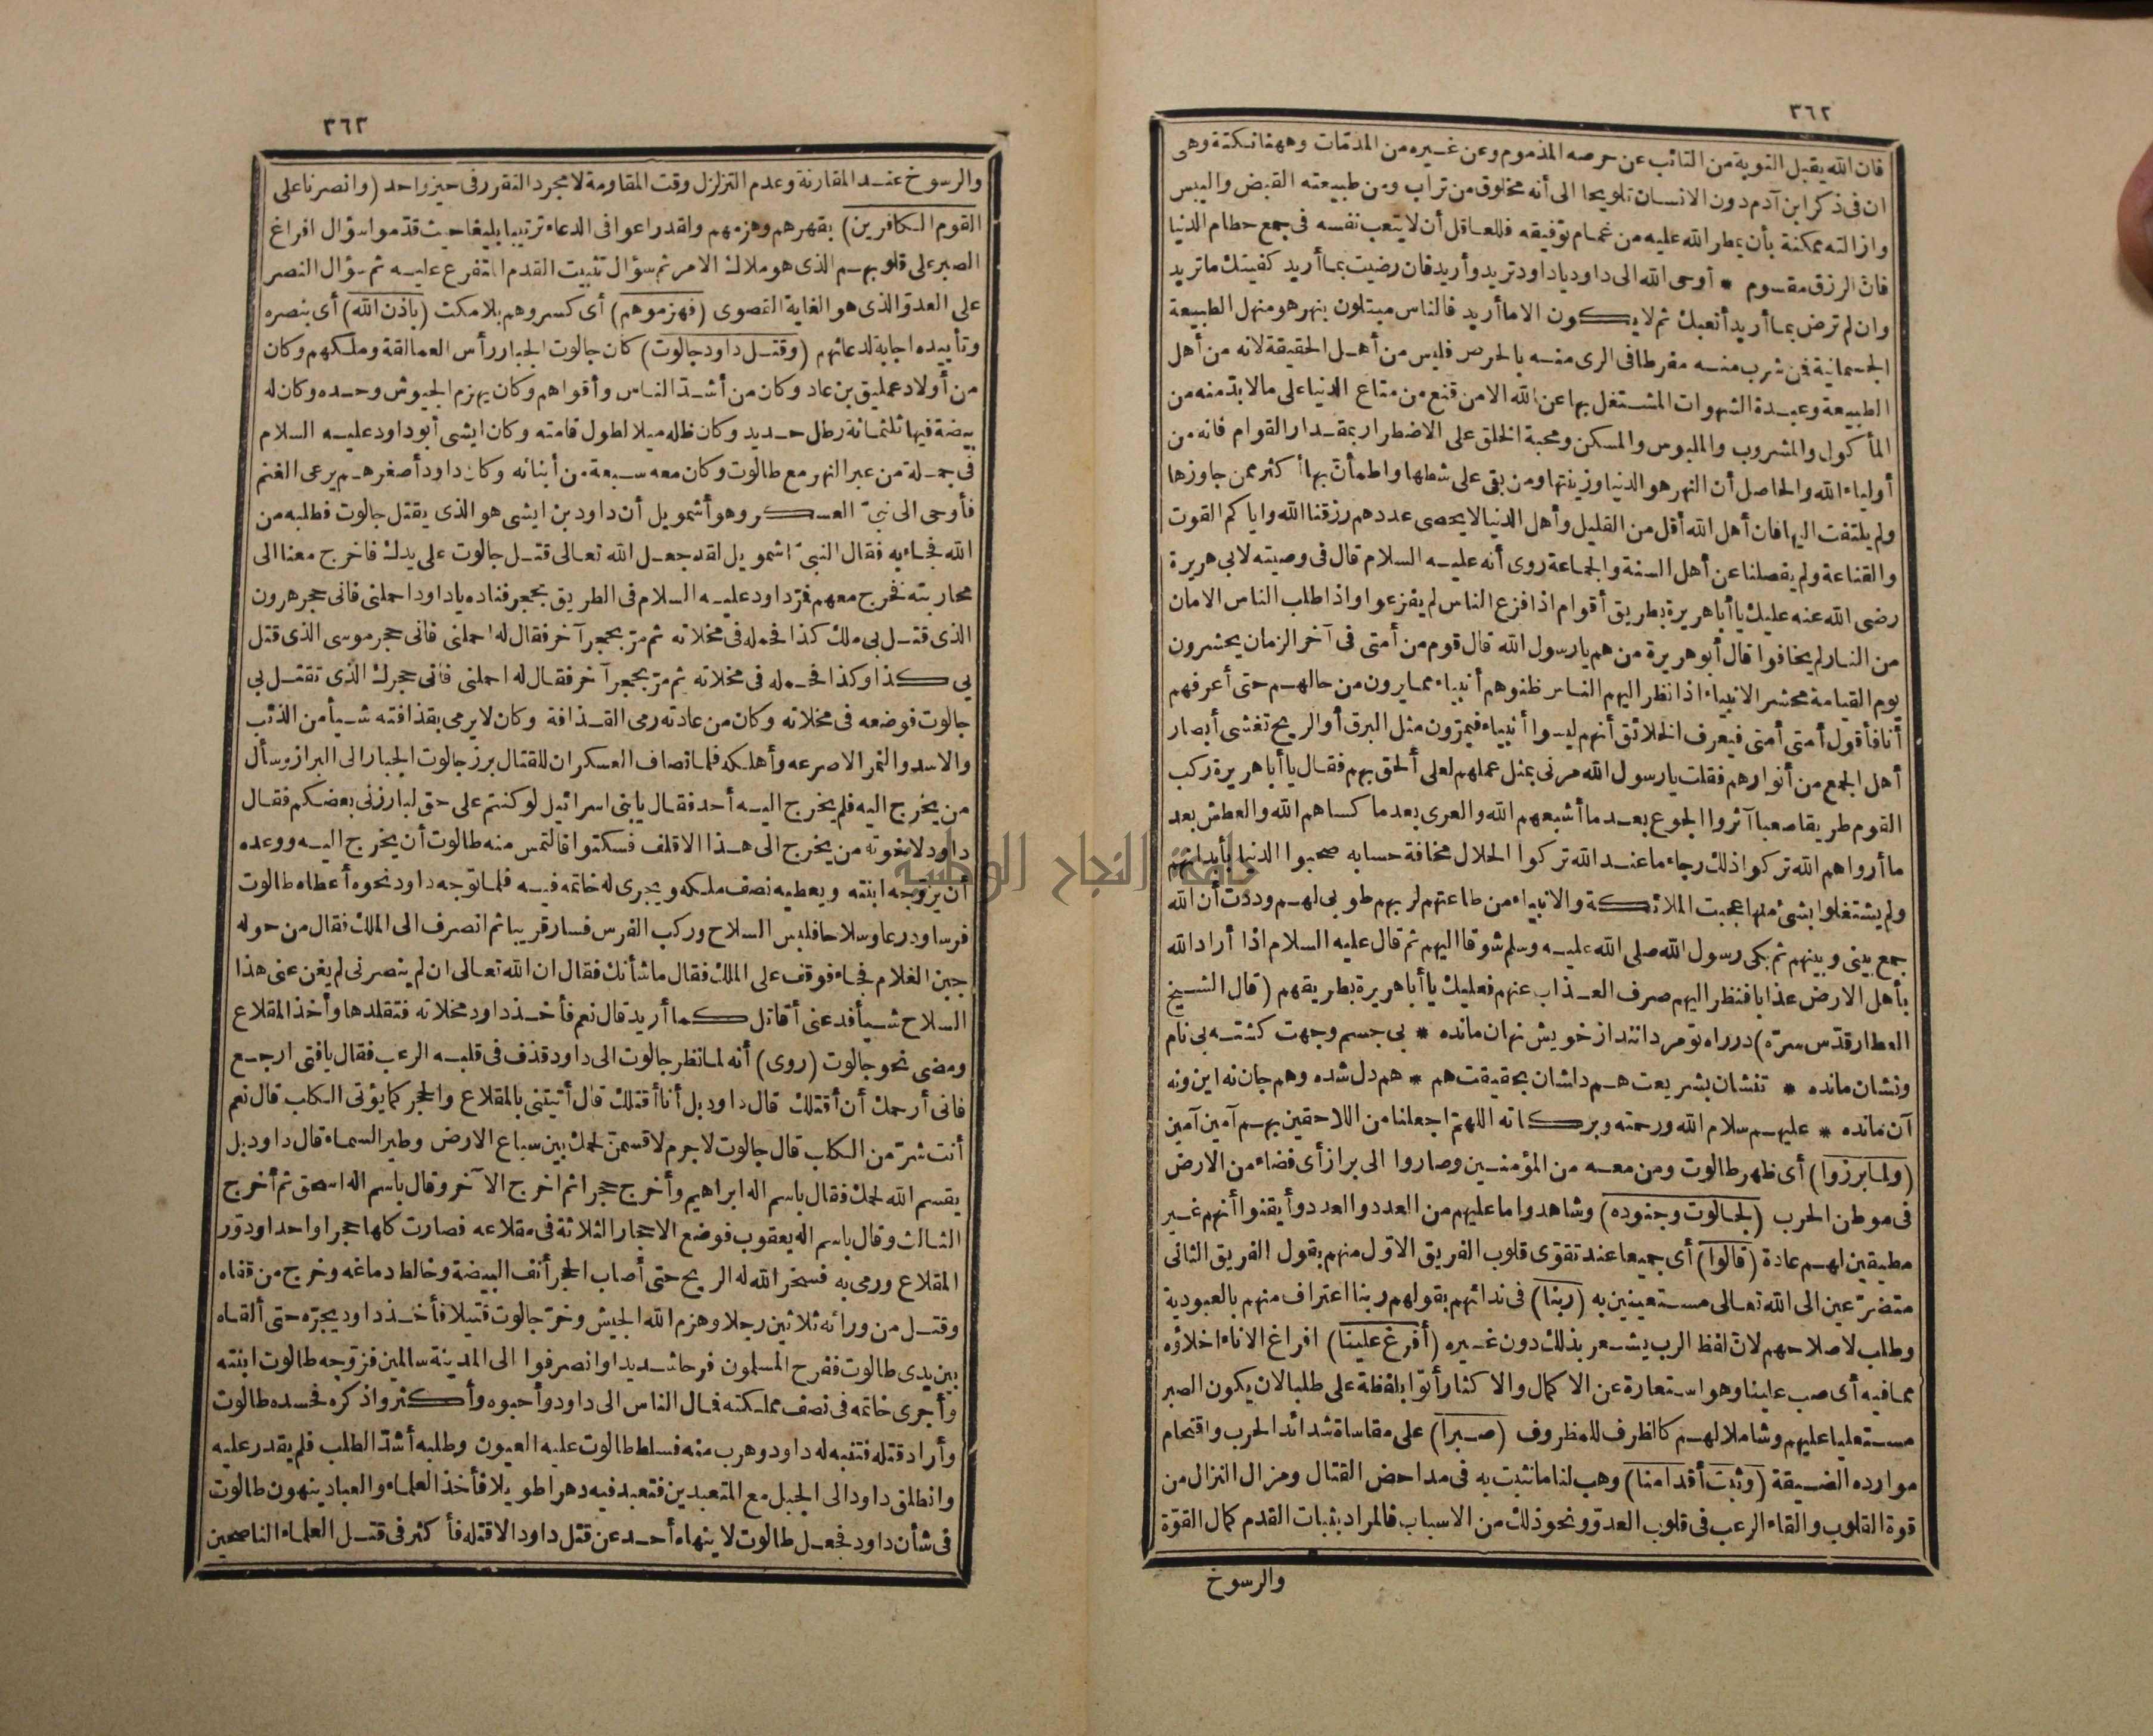 ٣٦٢
فان الله يقبل التوبة من التائب عن حرصه المذموم وعن غيره من المذمات وههنا نكتة وهى
ان فى ذكر ابن آدم دون الانسان تلويحا الى أنه مخلوق من تراب ومن طبيعته القبض واليبس
وازالته ممكنة بأن يمطر الله عليه من غمام توفيقه فللعاقل أن لا يتعب نفسه فى جمع حطام الدنيا
فان الرزق مقسوم * أوحى الله الى داود ياداود تريد وأريد فان رضيت بما أريد كفيتك ما تريد
وان لم ترض بما أريد أتعبك ثم لا يكون الا ما أريد فالناس مبتلون بنهر هو منهل الطبيعة
الجسمانية فمن شرب منه مفرطا فى الرى منه بالحرص فليس من أهل الحقيقة لانه من أهل
الطبيعة وعبدة الشهوات المشتغل بها عن الله الا من قنع من متاع الدنيا على مالابد منه من
المأكول والمشروب والملبوس والمسكن ومحبة الخلق على الاضطرار بمقدار القوام فانه من
أولياء الله والحاصل أن النهر هو الدنيا وزينتها ومن بقى على شطها واطمأن بها أكثر ممن جاوزها
ولم يلتفت اليها فان أهل الله أقل من القليل وأهل الدنيا لا يحصى عددهم رزقنا الله واياكم القوت
والقناعة ولم يفصلنا عن أهل السنة والجماعة روى أنه عليه السلام قال فى وصيته لابى هريرة
رضى الله عنه عليك يا أبا هريرة بطريق أقوام اذا فزع الناس لم يفزعوا واذا طلب الناس الامان
من النار لم يخافوا قال أبو هريرة من هم يارسول الله قال قوم من أمتى فى آخر الزمان يحشرون
يوم القيامة محشر الانبياء اذا نظر اليهم الناس ظنوهم أنبياء مما يرون من حالهم حتى أعرفهم
أنا فأقول أمتى أمتى فيعرف الخلائق أنهم ليسوا أنبياء فيمرون مثل البرق أو الريح تغشى أبصار
أهل الجمع من أنوارهم فقلت يارسول الله مرنى بمثل عملهم لعلى ألحق بهم فقال يا أبا هريرة ركب
القوم طريقا صعبا آثروا الجوع بعد ما أشبعهم الله والعرى بعد ما كساهم الله والعطش بعد
ما أرواهم الله تركوا ذلك رجاء ما عند الله تركوا الحلال مخافة حسابه صحبوا الدنيا بأبدانهم
ولم يشتغلوا بشئ منها عجبت الملائكة والانبياء من طاعتهم لربهم طوبى لهم وددت أن الله
جمع بينى وبينهم ثم بكى رسول الله صلى الله عليه وسلم شوقا اليهم ثم قال عليه السلام اذا أراد الله
بأهل الارض عذابا فنظر اليهم صرف العذاب عنهم فعليك يا أبا هريرة بطريقهم (قال الشيخ
العطار قدس سره) درراه تو مردانند از خويش نهان مانده * بى جسم وجهت كشته بى نام
ونشان مانده * تنشان بشريعت هم دلشان بحقيقت هم * هم دل شده وهم جان نه اين ونه
آن مانده * عليهم سلام الله ورحمته وبركاته اللهم اجعلنا من اللاحقين بهم آمين آمين
(ولما برزوا) أى ظهر طالوت ومن معه من المؤمنين وصاروا الى براز أى فضاء من الارض
فى موطن الحرب (لجالوت وجنوده) وشاهدوا ما عليهم من العدد والعدد وأيقنوا أنهم غير
مطيقين لهم عادة (قالوا) أى جميعا عند تقوى قلوب الفريق الاول منهم بقول الفريق الثانى
متضرعين الى الله تعالى مستعينين به (ربنا) فى ندائهم بقولهم ربنا اعتراف منهم بالعبودية
وطلب لاصلاحهم لان لفظ الرب يشعر بذلك دون غيره (أفرغ علينا) افراغ الاناء اخلاؤه
مما فيه أى صب علينا وهو استعارة عن الاكمال والاكثار وأتوا بلفظة على طلبا لان يكون الصبر
مستعليا عليهم وشاملا لهم كالظرف للمظروف (صبرا) على مقاساة شدائد الحرب واقتحام
موارده الضيقة (وثبت أقدامنا) وهب لنا ما نثبت به فى مداحض القتال ومزال النزال من
قوة القلوب والقاء الرعب فى قلوب العدو ونحو ذلك من الاسباب فالمراد بثبات القدم كمال القوة
والرسوخ
٣٦٣
والرسوخ عند المقارنة وعدم التزلزل وقت المقاومة لا مجرد التقرر فى حيز واحد (وانصرنا على
القوم الكافرين) بقهرهم وهزمهم ولقد راعوا فى الدعاء ترتيبا بليغا حيث قدموا سؤال افراغ
الصبر على قلوبهم الذى هو ملاك الامر ثم سؤال تثبيت القدم المتفرع عليه ثم سؤال النصر
على العدو الذى هو الغاية القصوى (فهزموهم) أى كسروهم بلا مكث (باذن الله) أى بنصره
وتأييده اجابة لدعائهم (وقتل داود جالوت) كان جالوت الجبار رأس العمالقة وملكهم وكان
من أولاد عمليق بن عاد وكان من أشد الناس وأقواهم وكان يهزم الجيوش وحده وكان له
بيضة فيها ثلثمائة رطل حديد وكان ظله ميلا لطول قامته وكان ايشى أبو داود عليه السلام
فى جملة من عبر النهر مع طالوت وكان معه سبعة من أبنائه وكان داود أصغرهم يرعى الغنم
فأوحى الى نبى العسكر وهو أشمويل أن داود بن ايشى هو الذى يقتل جالوت فطلبه من
الله فجاء به فقال النبى اشمويل لقد جعل الله تعالى قتل جالوت على يدك فاخرج معنا الى
محاربته فخرج معهم فمر داود عليه السلام فى الطريق بحجر فناداه ياداود احملنى فانى حجر هرون
الذى قتل بى ملك كذا فحمله فى مخلاته ثم مر بحجر آخر فقال له احملنى فانى حجر موسى الذى قتل
بى كذا وكذا فحمله فى مخلاته ثم مر بحجر آخر فقال له احملنى فانى حجرك الذى تقتل بى
جالوت فوضعه فى مخلاته وكان من عادته رمى القذافة وكان لا يرمى بقذافته شيأ من الذئب
والاسد والنمر الا صرعه وأهلكه فلما تصاف العسكران للقتال برز جالوت الجبار الى البراز وسأل
من يخرج اليه فلم يخرج اليه أحد فقال يا بنى اسرائيل لو كنتم على حق لبارزنى بعضكم فقال
داود لاخوته من يخرج الى هذا الاقلف فسكتوا فالتمس منه طالوت أن يخرج اليه ووعده
أن يزوجه ابنته ويعطيه نصف ملكه ويجرى له خاتمه فيه فلما توجه داود نحوه أعطاه طالوت
فرسا ودرعا وسلاحا فلبس السلاح وركب الفرس فسار قريبا ثم انصرف الى الملك فقال من حوله
جبن الغلام فجاء فوقف على الملك فقال ما شأنك فقال ان الله تعالى ان لم ينصرنى لم يغن عنى هذا
السلاح شيأ فدعنى أقاتل كما أريد قال نعم فأخذ داود مخلاته فتقلدها وأخذ المقلاع
ومضى نحو جالوت (روى) أنه لما نظر جالوت الى داود قذف فى قلبه الرعب فقال يافتى ارجع
فانى أرحمك أن أقتلك قال داود بل أنا أقتلك قال أتيتنى بالمقلاع والحجر كما يؤتى الكلب قال نعم
أنت شر من الكلب قال جالوت لا جرم لاقسمن لحمك بين سباع الارض وطير السماء قال داود بل
يقسم الله لحمك فقال باسم اله ابراهيم وأخرج حجرا ثم اخرج الآخر وقال باسم اله اسحق ثم أخرج
الثالث وقال باسم اله يعقوب فوضع الاحجار الثلاثة فى مقلاعه فصارت كلها حجرا واحدا ودور
المقلاع ورمى به فسخر الله له الريح حتى أصاب الحجر أنف البيضة وخالط دماغه وخرج من قفاه
وقتل من ورائه ثلاثين رجلا وهزم الله الجيش وخر جالوت قتيلا فأخذ داود يجره حتى ألقاه
بين يدى طالوت ففرح المسلمون فرحا شديدا وانصرفوا الى المدينة سالمين فزوجه طالوت ابنته
وأجرى خاتمه فى نصف مملكته فمال الناس الى داود وأحبوه وأكثروا ذكره فحسده طالوت
وأراد قتله فتنبه له داود وهرب منه فسلط طالوت عليه العيون وطلبه أشد الطلب فلم يقدر عليه
وانطلق داود الى الجبل مع المتعبدين فتعبد فيه دهرا طويلا فأخذ العلماء والعباد ينهون طالوت
فى شأن داود فجعل طالوت لا ينهاه أحد عن قتل داود الا قتله فأكثر فى قتل العلماء الناصحين
جامعة النجاح الوطنية